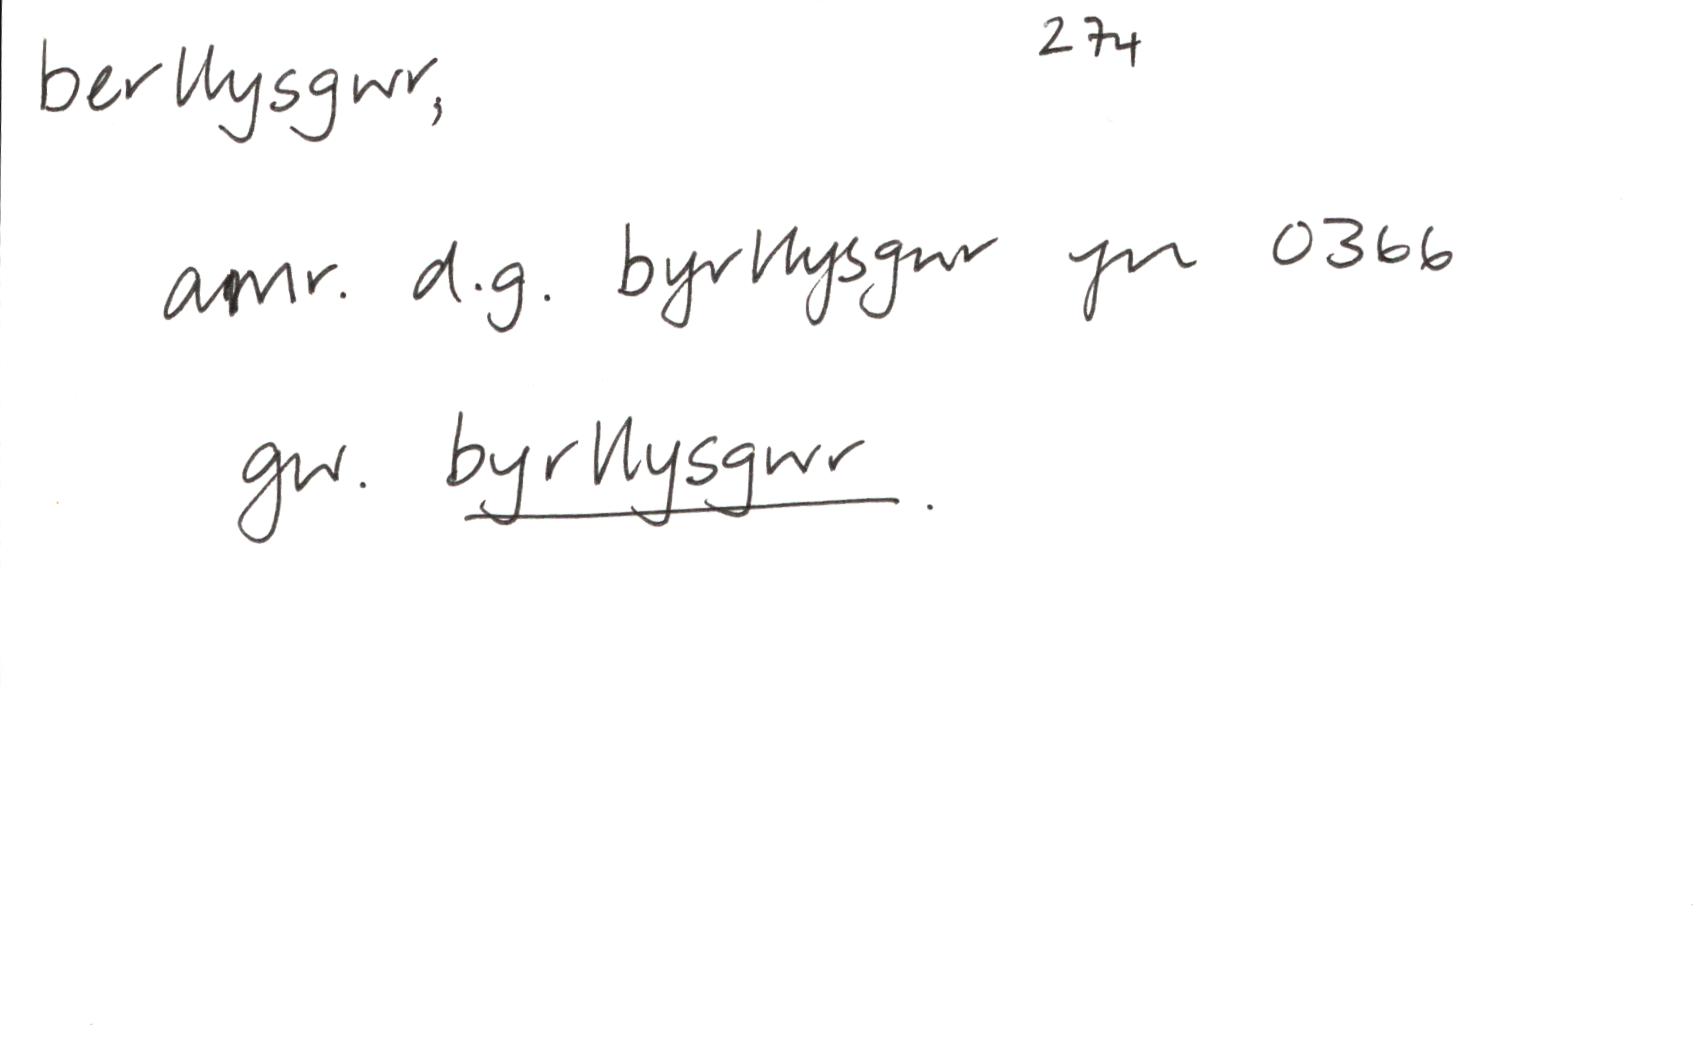 274
berllysgwr,
amr. d.g. byrllysgwr yn 0366
gw. byrllysgwr.